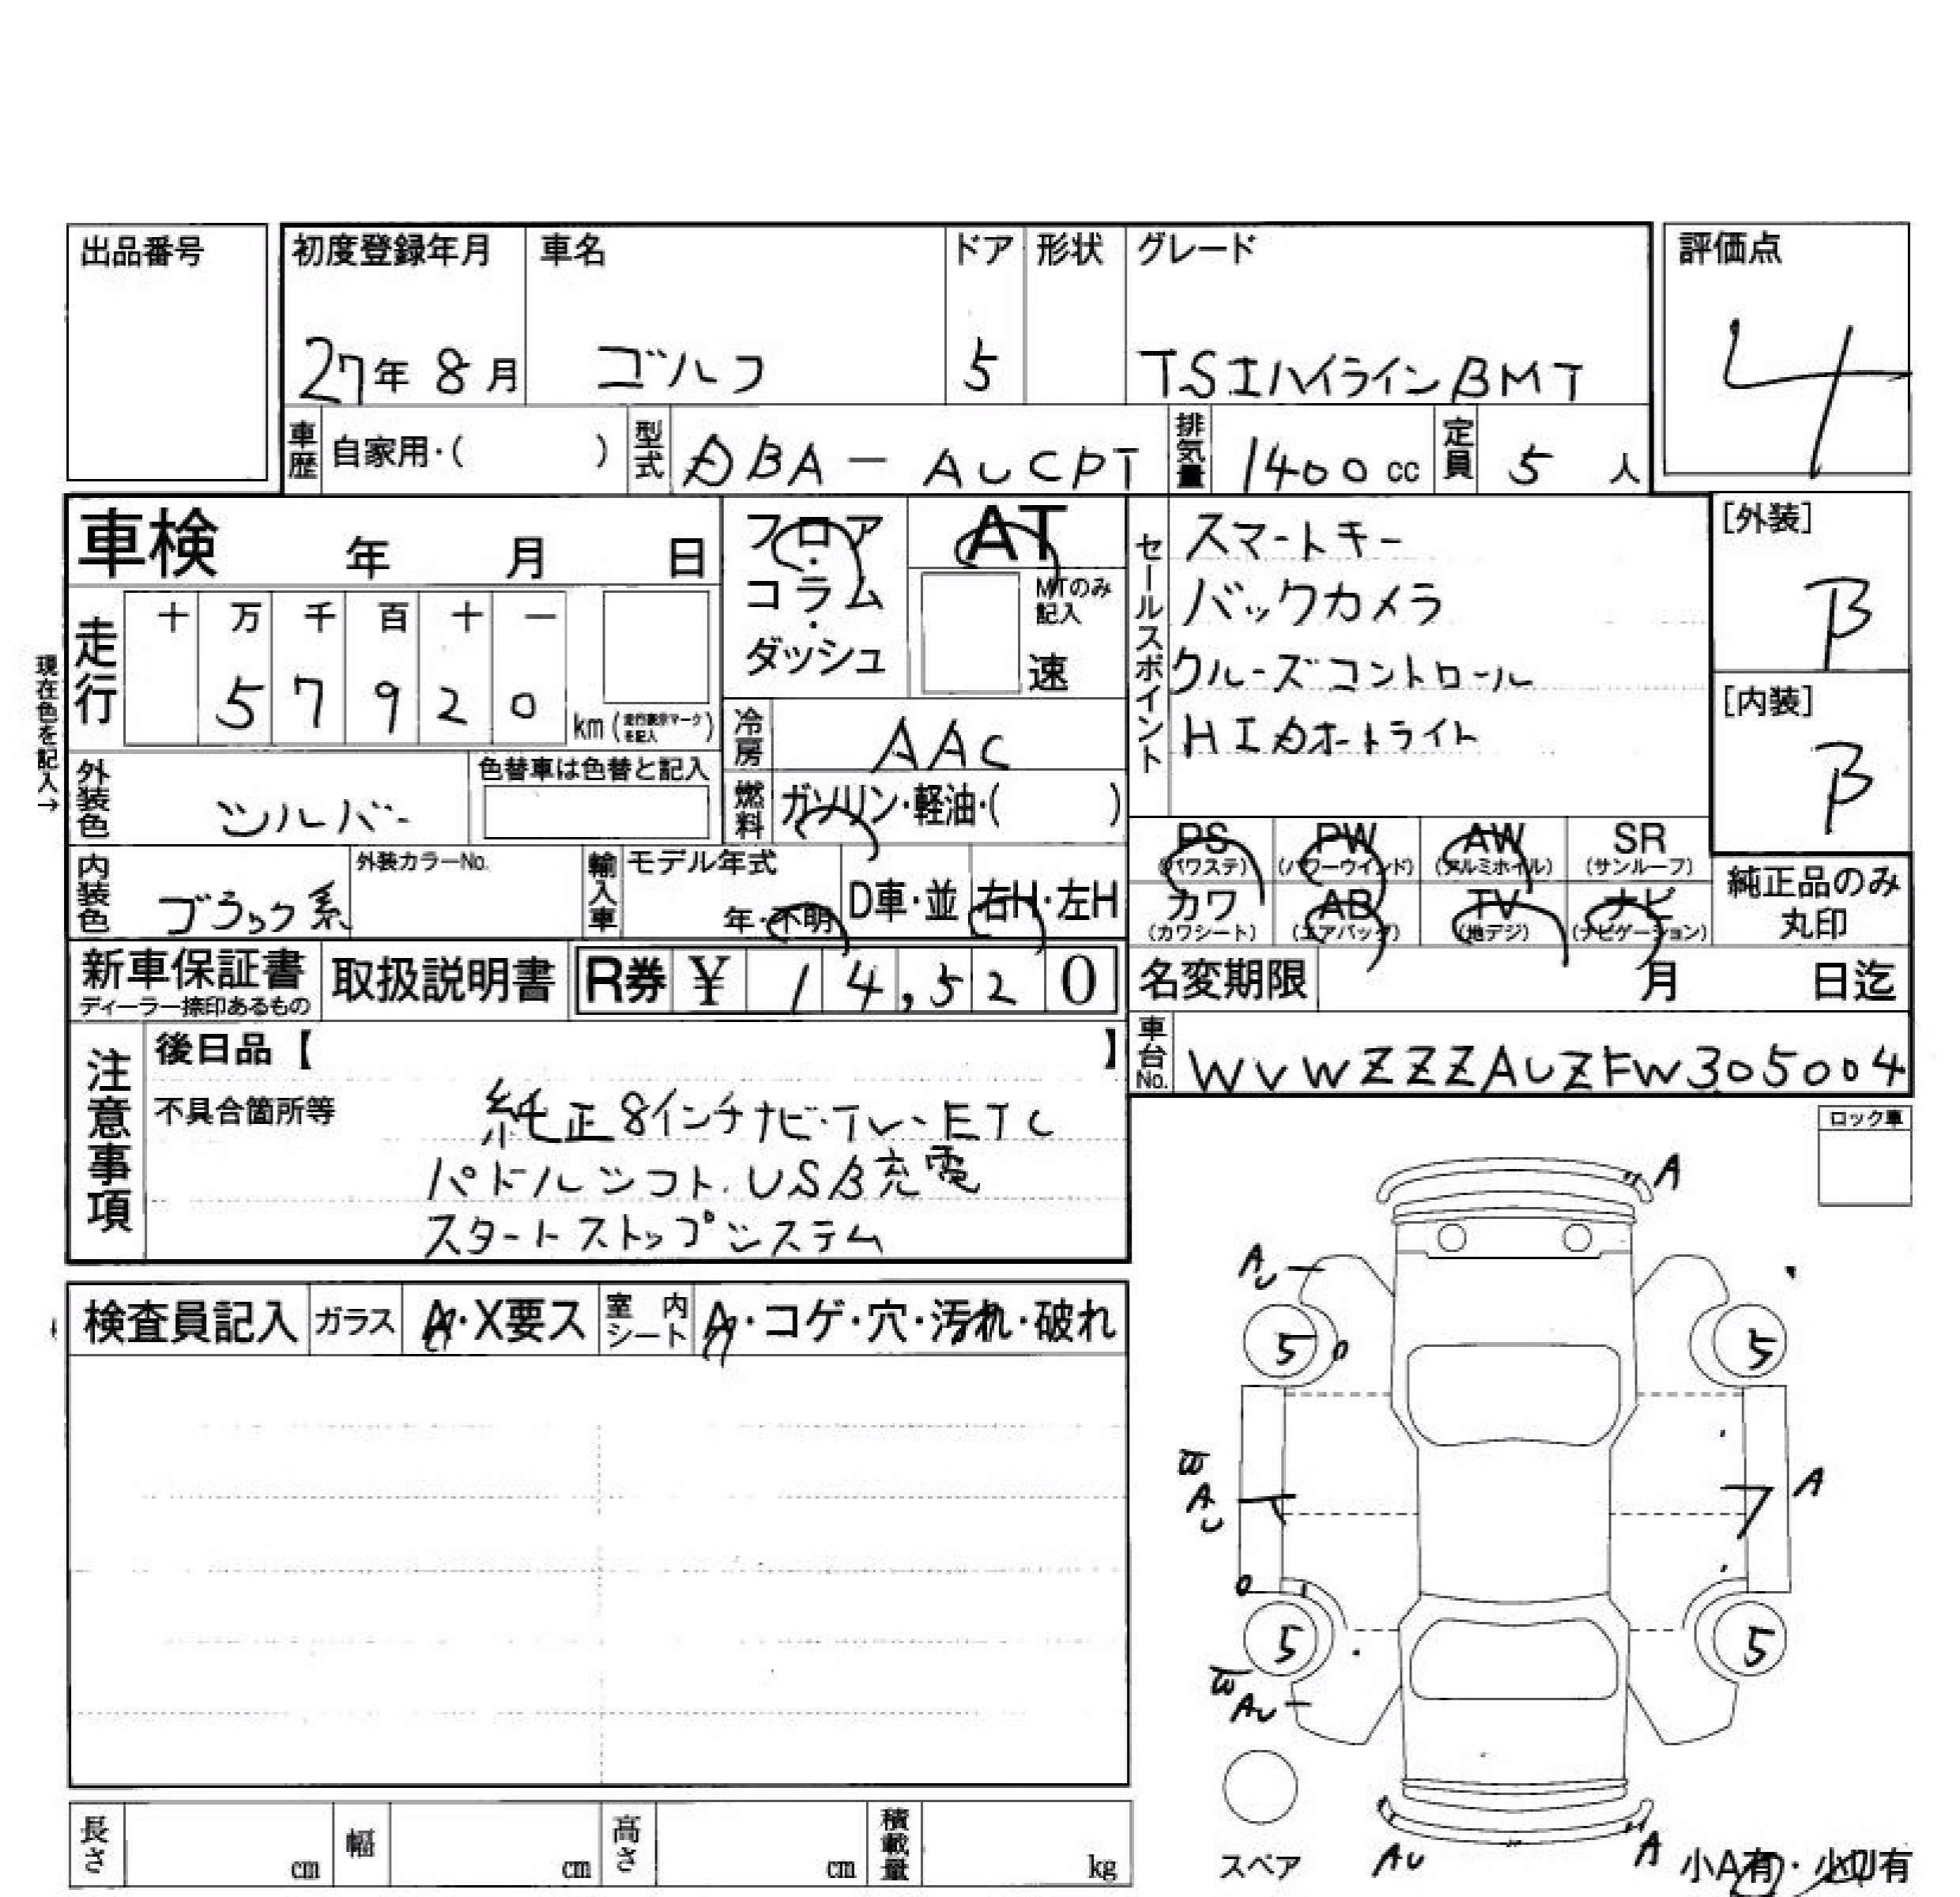 出品番号
初度登録年月 車名 ドア 形状 グレード 評価点
27年 8月 ゴルフ 5 TSIハイラインBMT 4
車歴 自家用・( ) 型式 DBA-AUCPT 排気量 1400cc 定員 5 人
車検 年 月 日
フロア・コラム・ダッシュ
AT
MTのみ記入
速
現在色を記入→
走行 十 万 千 百 十 一
5 7 9 2 0 km(走行表示マークを記入)
冷房 AAC
燃料 ガソリン・軽油・( )
外装色 シルバー 色替車は色替と記入
内装色 ブラック系 外装カラーNo.
輸入車 モデル年式 年・不明 D車・並 右H・左H
セールスポイント
スマートキー
バックカメラ
クルーズコントロール
HIDオートライト
[外装]
B
[内装]
B
PS PW AW SR
(パワステ) (パワーウインド) (アルミホイル) (サンルーフ)
カワ AB TV ナビ
(カワシート) (エアバッグ) (地デジ) (ナビゲーション)
純正品のみ丸印
新車保証書
ディーラー捺印あるもの
取扱説明書 R券 ¥ 14,520
名変期限 月 日迄
車台No. WVWZZZAUZFW305004
注意事項
後日品【 】
不具合箇所等 純正8インチナビ・TV・ETC
パドルシフト.USB充電
スタートストップシステム
ロック車
検査員記入 ガラス A・X要ス 室内シート A・コゲ・穴・汚れ・破れ
A
AU
5 5
W
AU
A
5 5
W
AU
スペア
AU A
小A有・小U有
長さ cm 幅 cm 高さ cm 積載量 kg